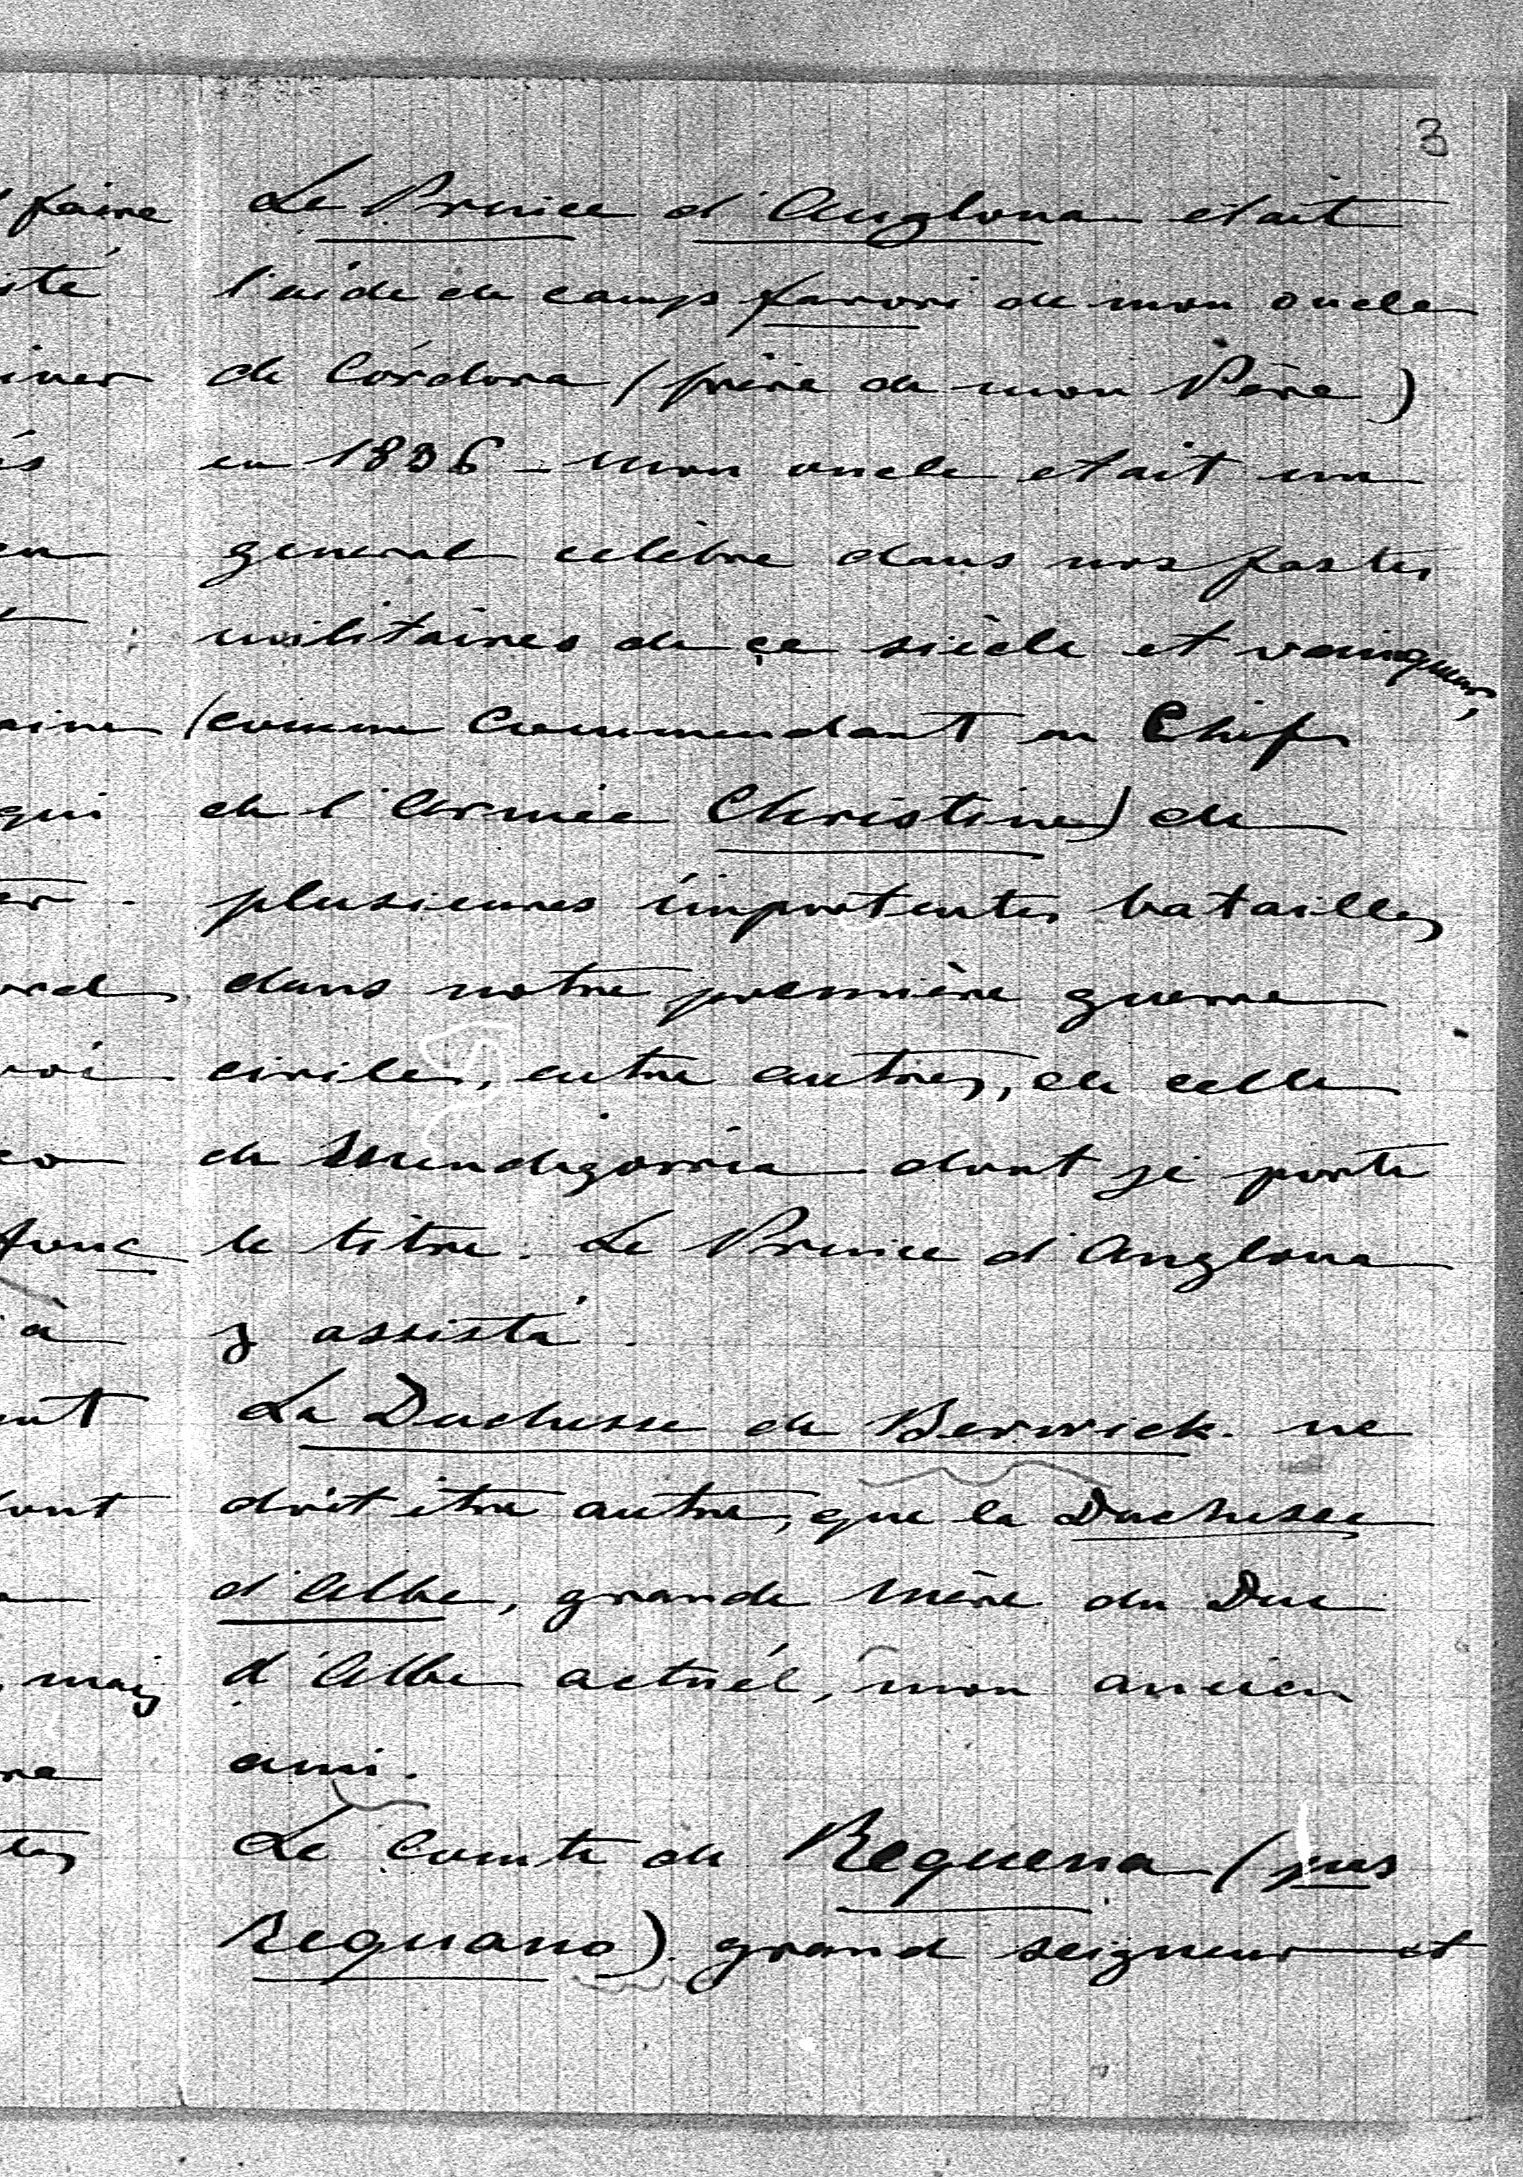 3
faire
Le Prince d'Anglona était
ité
l'aide de camp favori de mon oncle
iner
de Córdova (frère de mon Père)
is
en 1836 - mon oncle etait un
en
general celèbre dans nos fastes
militaires de çe siècle et vainqueur,
aine
(comme Commendant en Chef
qui
de l'Armée Christine) de
er.
plusieures importentes batailles
ord
dans notre première guerre
roi
civile, entre autres, de celle
co
de Mendigorria dont je porte
fonc
le titre. Le Prince d'Anglona
à
y assistá.
ent
La Duchesse de Berwick ne
dont
doit être autre, que la Duchesse
d'Albe, grande mère du Duc
, mais
d'Albe actuél, mon ancien
re
ami.
tes
Le Comte de Requena (pas
Requano). grand seigneur et